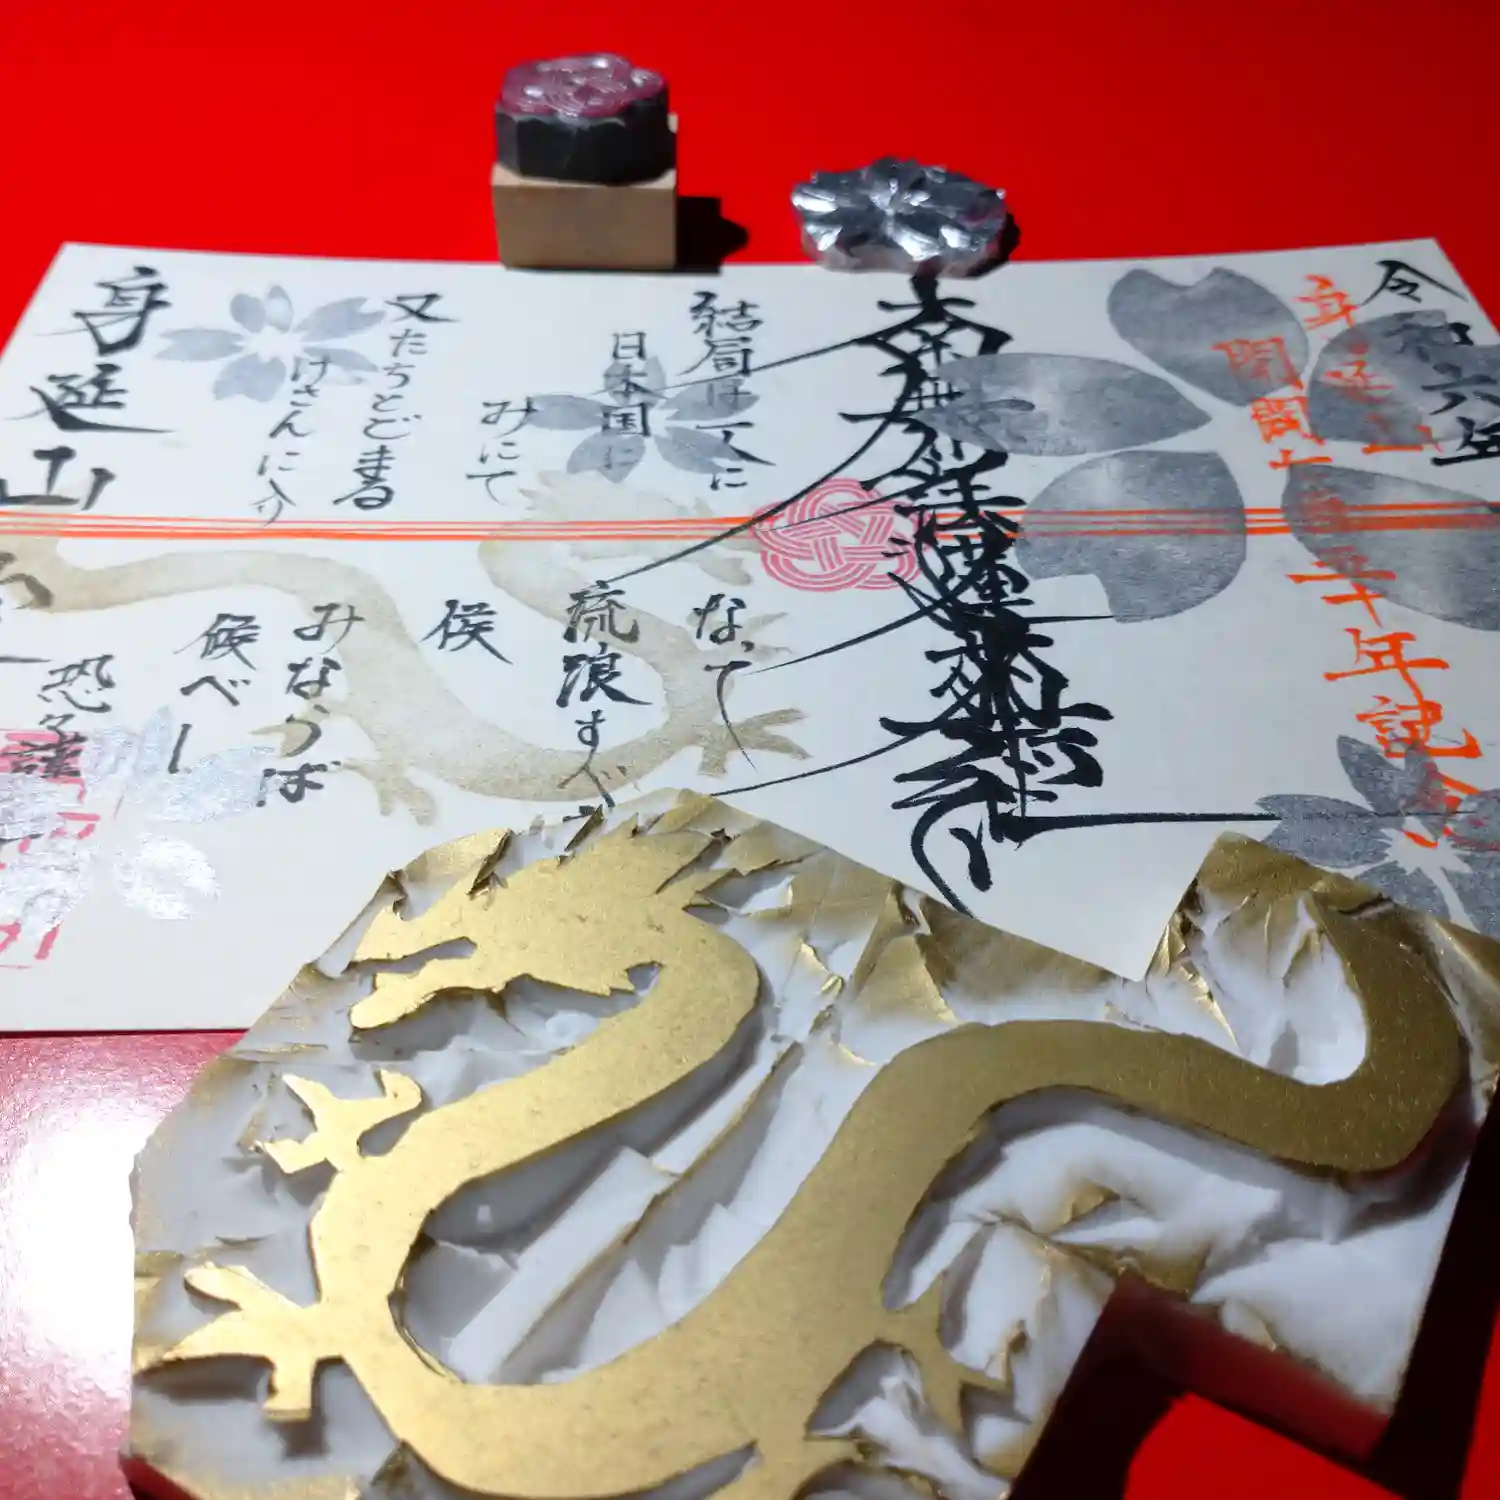 令和六年
身延山
開闢七百五十年記念
南無妙法蓮華経
結局は一人に
なって
日本国に
流浪すべき
みにて
候
又たちとどまる
みならば
けさんに入
候べし
恐々謹言
身延山